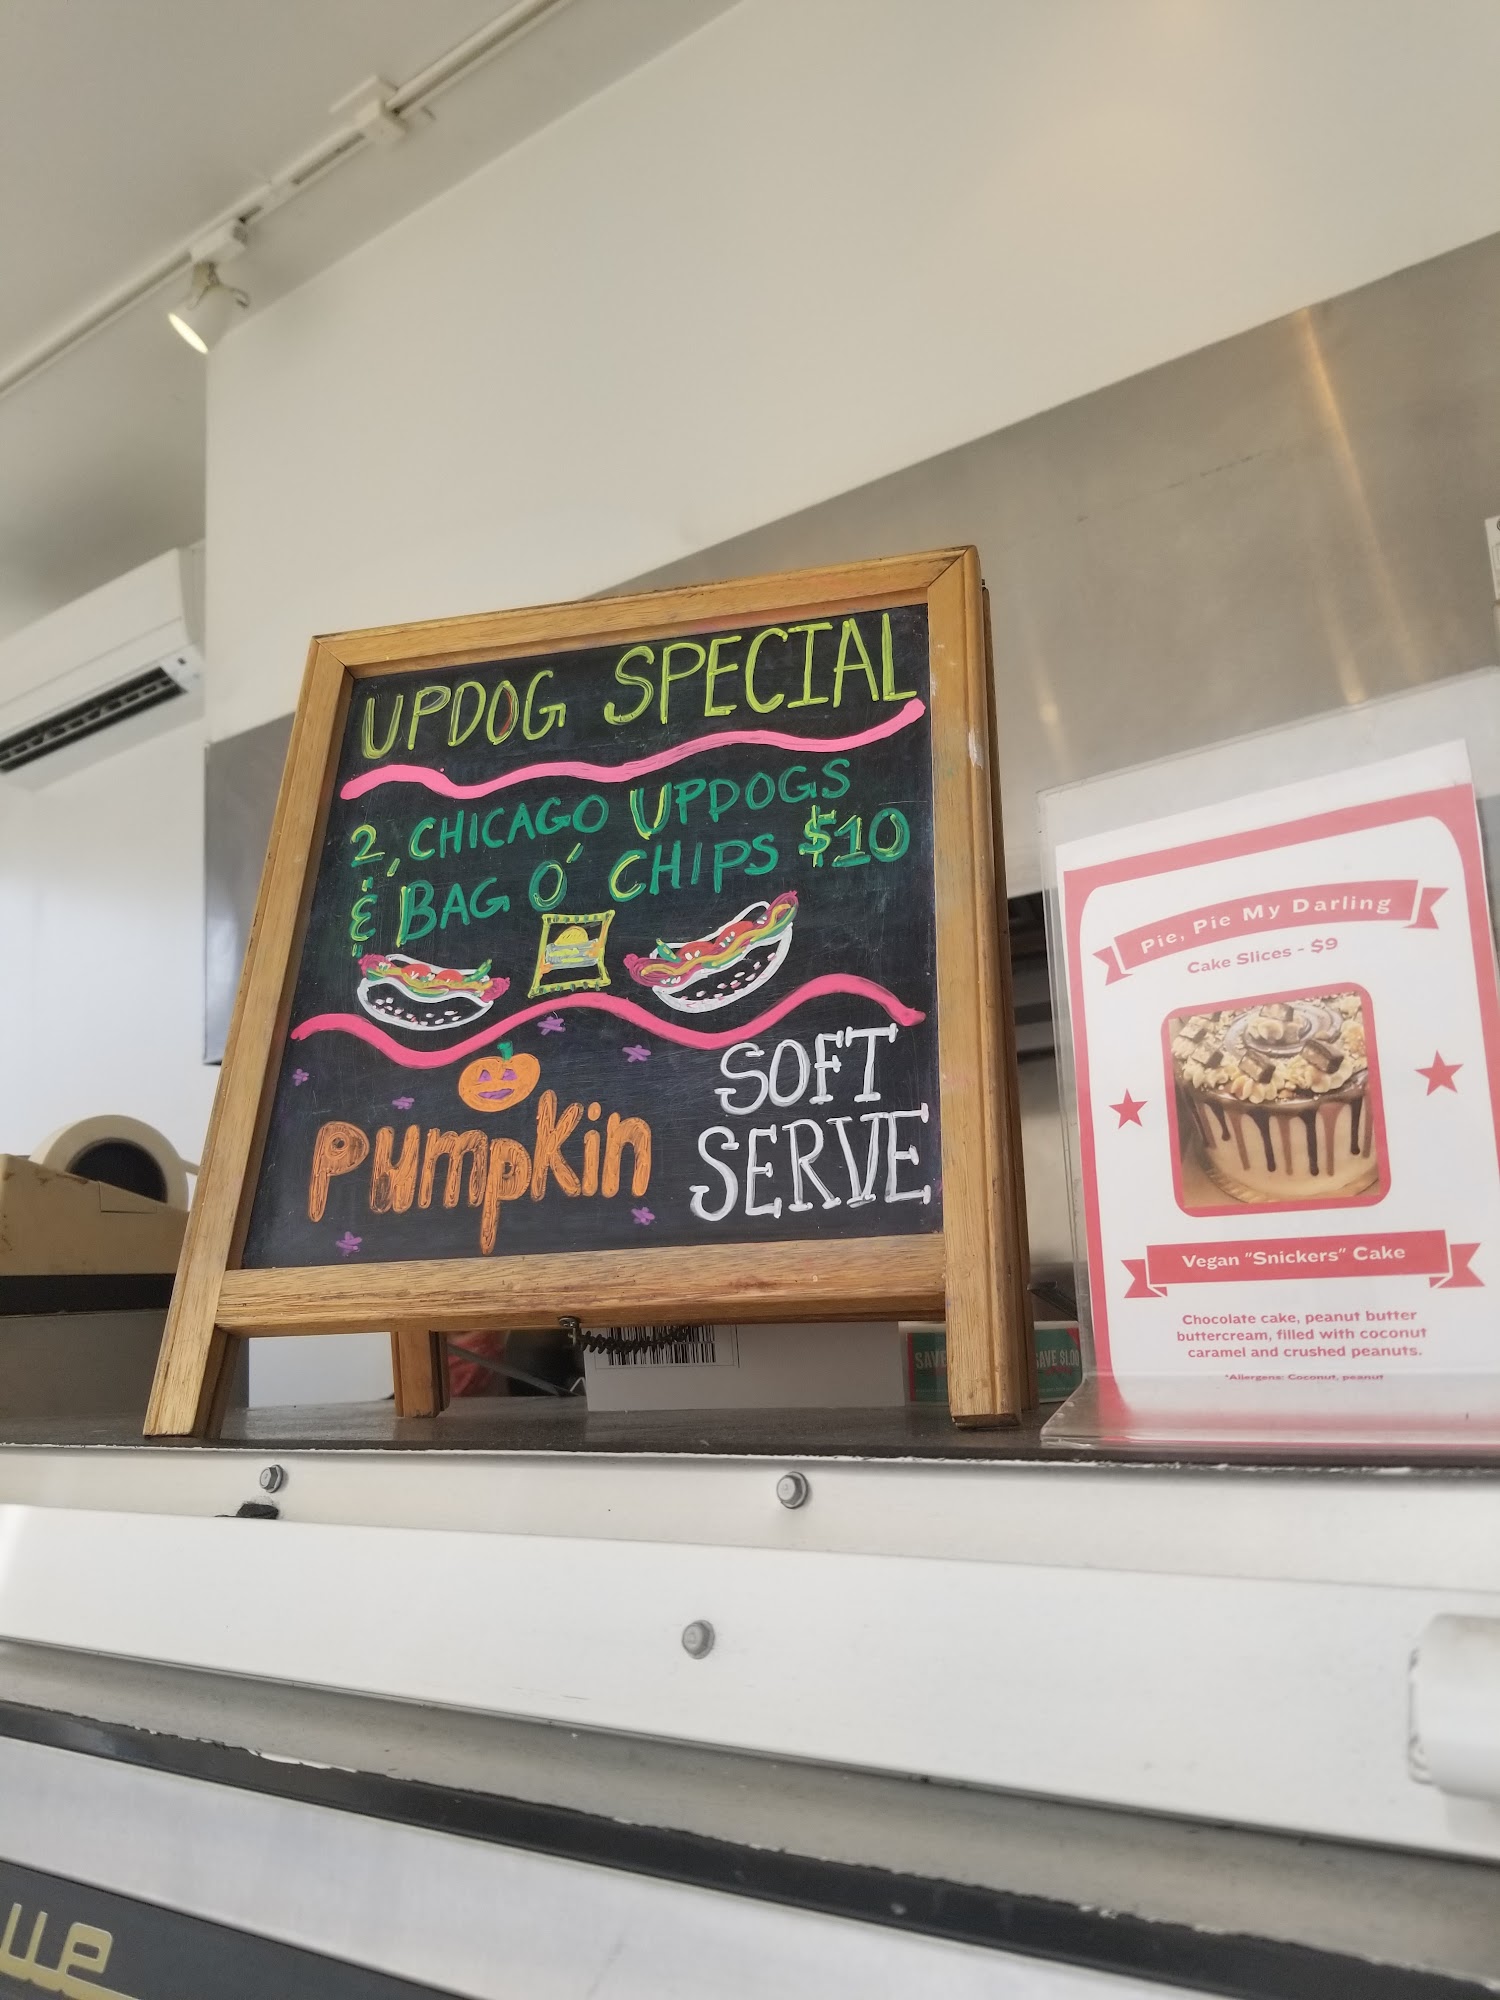 UPDOG SPECIAL
2 CHICAGO UPDOGS
& BAG O' CHIPS $10
PUMPKIN
SOFT
SERVE
Pie, Pie My Darling
Cake Slices - $9
Vegan "Snickers" Cake
Chocolate cake, peanut butter
buttercream, filled with coconut
caramel and crushed peanuts.
*Allergens: Coconut, peanut
SAVE
SAVE $1.00